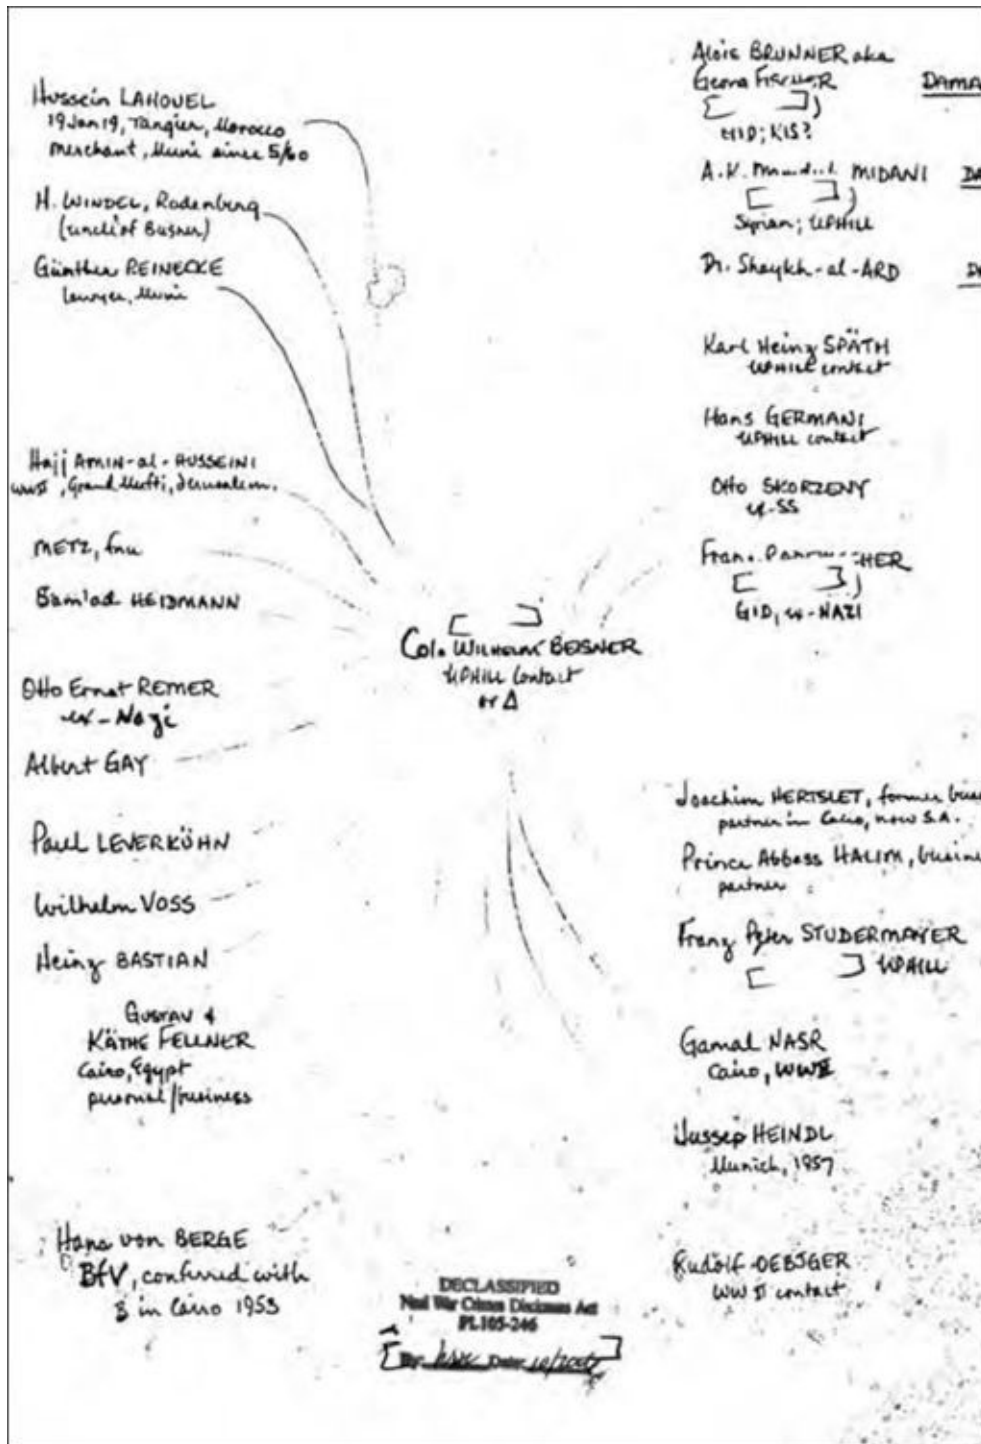 Hussein LAHOUEL
19 Jan 19, Tangier, Morocco
Merchant, Muni since 5/60
H. WINDEL, Rodenberg
(uncle of Beisner)
Günther REINECKE
lawyer, Muni
Hajj AMIN-al-HUSSEINI
WWII, Grand Mufti, Jerusalem.
METZ, fnu
HEIDMANN
Otto Ernst REMER
ex-Nazi
Albert GAY
Paul LEVERKÜHN
Wilhelm VOSS
Heinz BASTIAN
GUSTAV &
KÄTHE FELLNER
Cairo, Egypt
personal/business
Hans von BERGE
BfV, conferred with
B in Cairo 1953
Col. WILHELM BEISNER
UPHILL Contact
or Δ
Alois BRUNNER aka
Georg FISCHER
DAMA
KIS?
A.K. MIDANI
DA
Syrian; UPHILL
Dr. Shaykh-al-ARD
Karl Heinz SPÄTH
UPHILL contact
Hans GERMANI
UPHILL contact
Otto SKORZENY
ex-SS
HER
GID, ex-NAZI
Joachim HERTSLET, former busi
partner in Cairo, now S.A.
Prince Abbass HALIM, busine
partner
Franz Peter STUDERMAYER
UPHILL
Gamal NASR
Cairo, WWII
Jussep HEINDL
Munich, 1957
Rudolf
WW II contact
DECLASSIFIED
Nazi War Crimes Disclosure Act
PL105-246
By: Date: